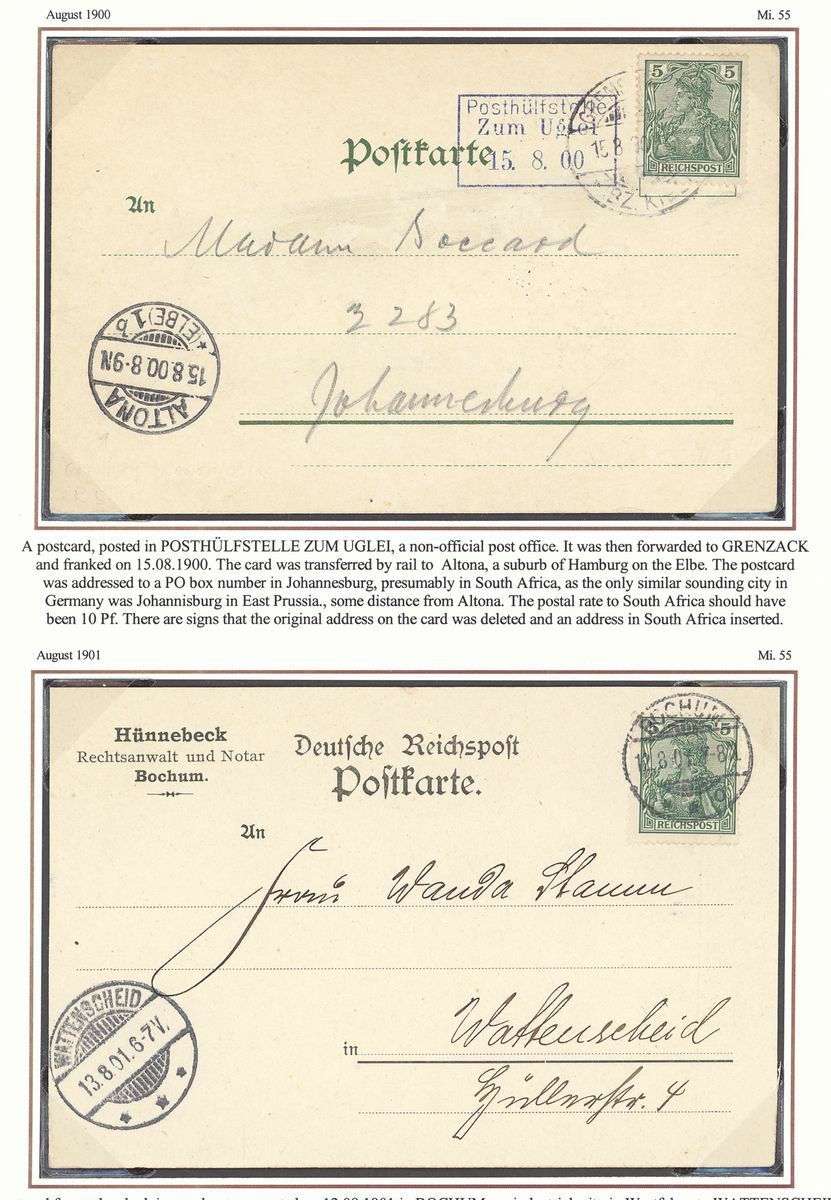 August 1900
Mi. 55
Posthülfstelle
Zum Uglei
15. 8. 00
5 5
REICHSPOST
15.8
BZ. KI
Postkarte
An
Madam Boccard
3 283
Johannesburg
ALTONA
15.8.00.8-9N
*(ELBE)1 b
A postcard, posted in POSTHÜLFSTELLE ZUM UGLEI, a non-official post office. It was then forwarded to GRENZACK
and franked on 15.08.1900. The card was transferred by rail to Altona, a suburb of Hamburg on the Elbe. The postcard
was addressed to a PO box number in Johannesburg, presumably in South Africa, as the only similar sounding city in
Germany was Johannisburg in East Prussia., some distance from Altona. The postal rate to South Africa should have
been 10 Pf. There are signs that the original address on the card was deleted and an address in South Africa inserted.
August 1901
Mi. 55
Hünnebeck
Rechtsanwalt und Notar
Bochum.
Deutsche Reichspost
Postkarte.
BOCHUM
5 5
REICHSPOST
An
Frau Wanda Stamm
WATTENSCHEID
13.8.01.6-7V.
in Wattenscheid
Hüllerstr. 4